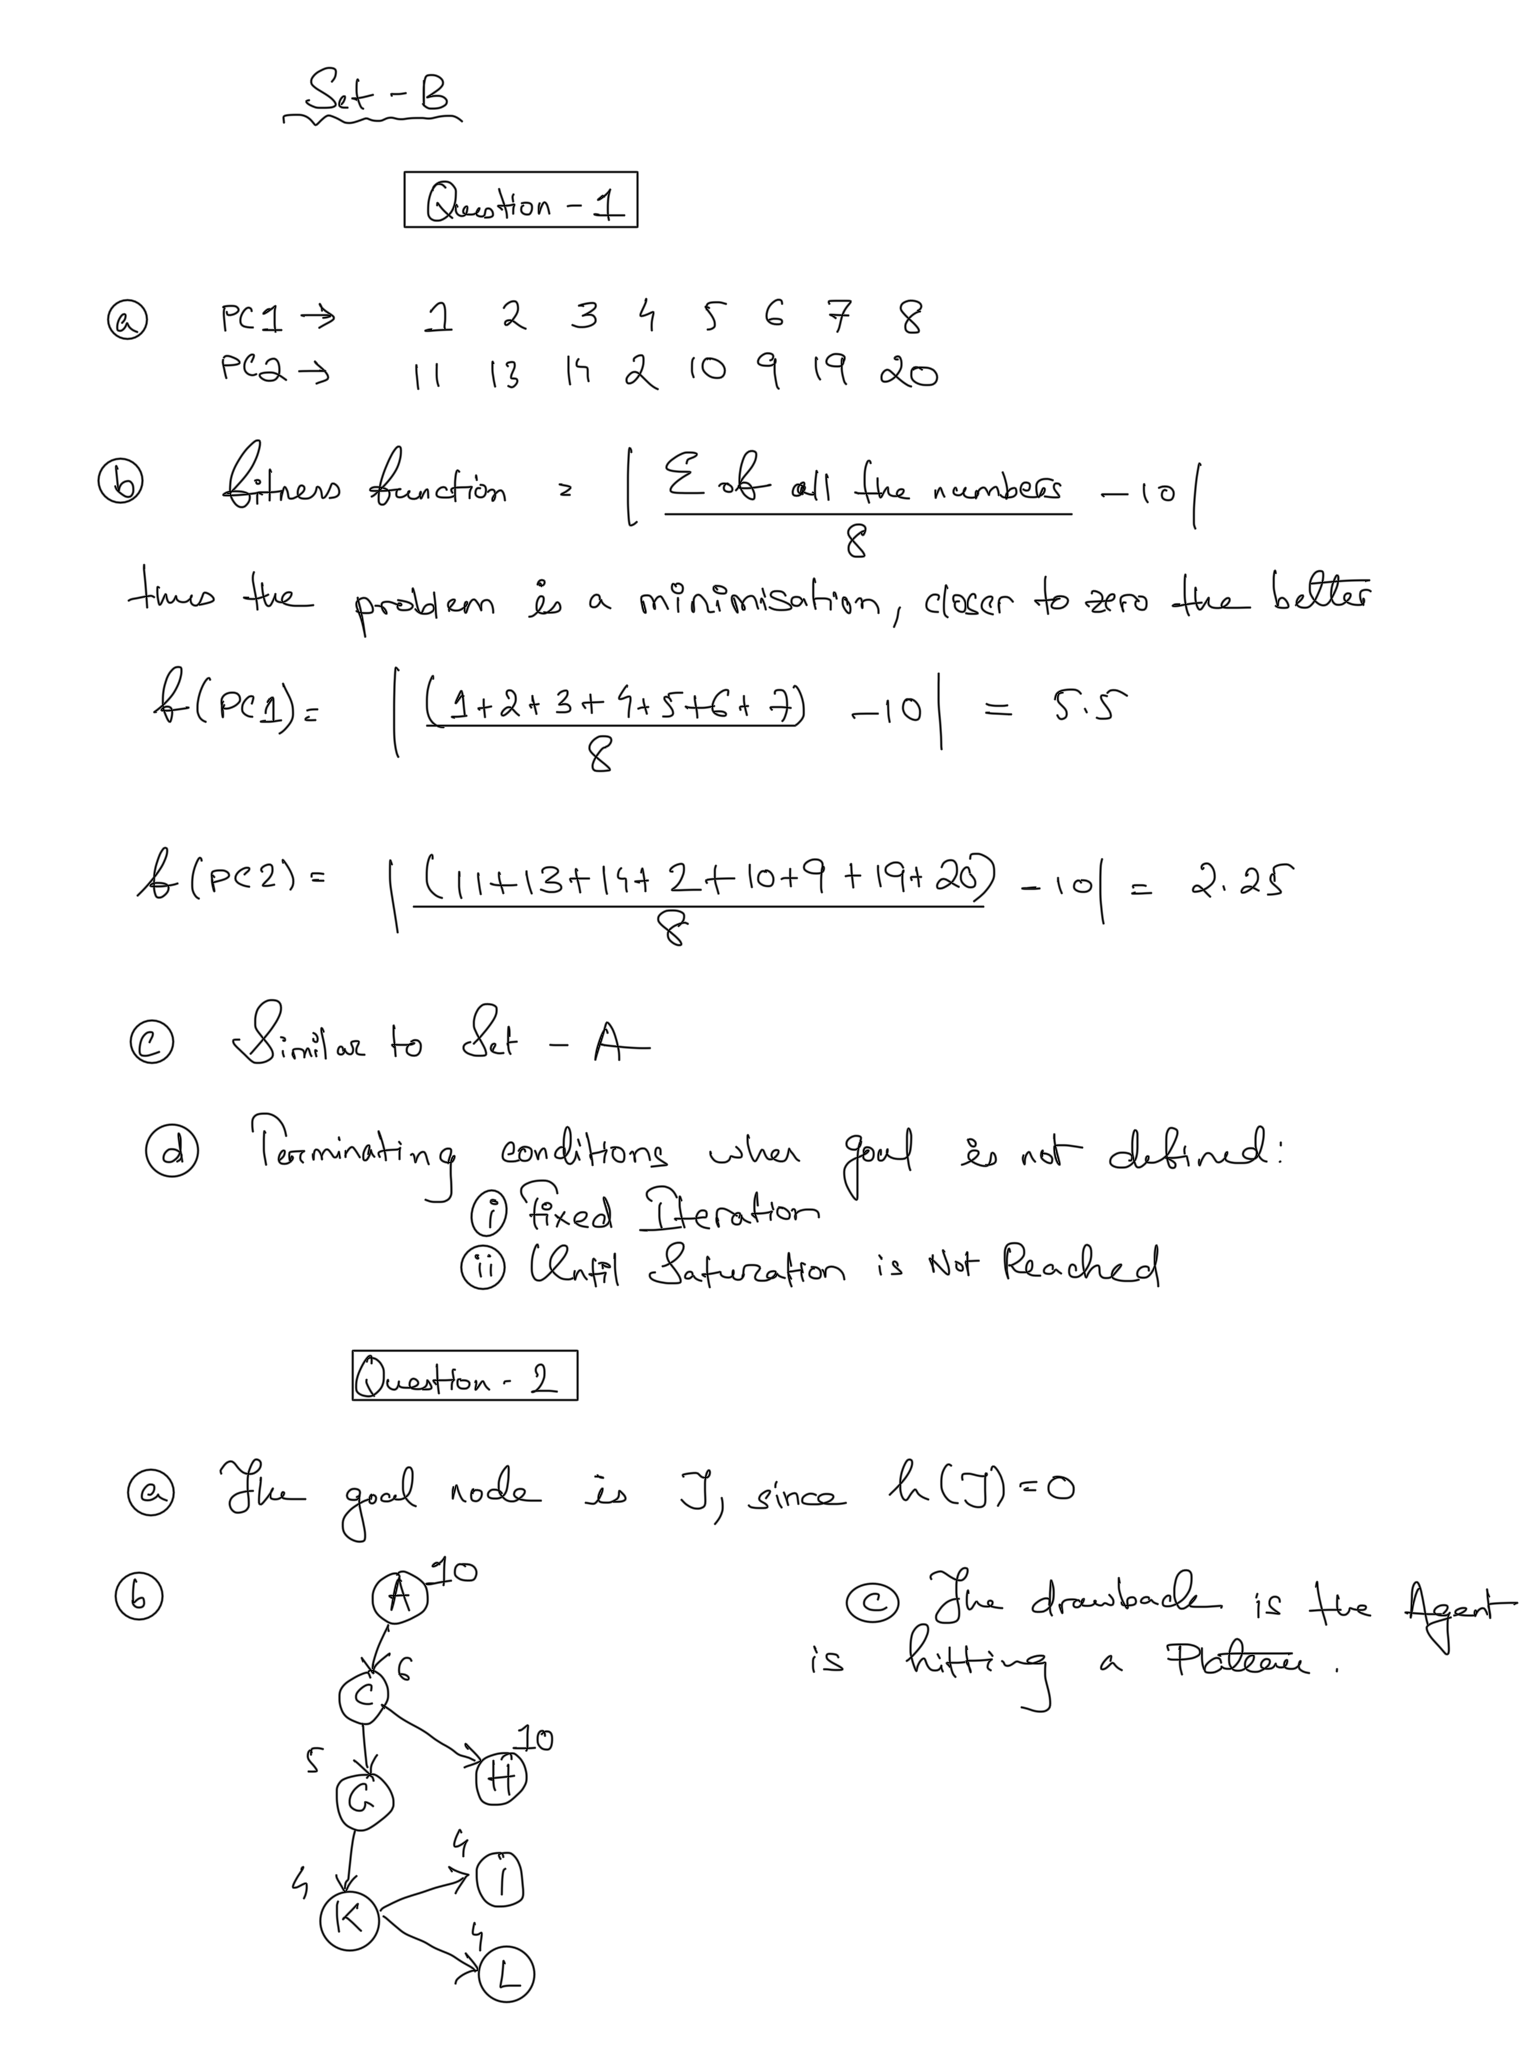 Set - B
Question - 1
(a) PC1 → 1 2 3 4 5 6 7 8
PC2 → 11 13 14 2 10 9 19 20
(b) fitness function = | Σ of all the numbers / 8 - 10 |
thus the problem is a minimisation, closer to zero the better
f(PC1) = | (1+2+3+4+5+6+7) / 8 - 10 | = 5.5
f(PC2) = | (11+13+14+2+10+9+19+20) / 8 - 10 | = 2.25
(c) Similar to Set - A
(d) Terminating conditions when goal is not defined:
(i) Fixed Iteration
(ii) Until Saturation is Not Reached
Question - 2
(a) The goal node is J, since h(J) = 0
(b)
A 10
C 6
G 5
H 10
K 4
I 4
L 4
(c) The drawback is the Agent
is hitting a Plateau.